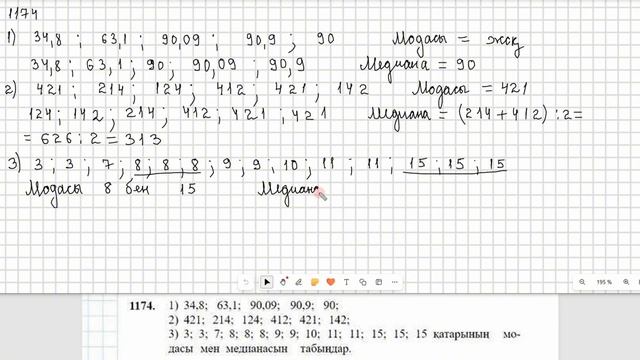 1174
1) 34,8 ; 63,1 ; 90,09 ; 90,9 ; 90 Модасы = жоқ
34,8 ; 63,1 ; 90 ; 90,09 ; 90,9 Медиана = 90
2) 421 ; 214 ; 124 ; 412 ; 421 ; 142 Модасы = 421
124 ; 142 ; 214 ; 412 ; 421 ; 421 Медиана = (214 + 412) : 2 =
= 626 : 2 = 313
3) 3 ; 3 ; 7 ; 8 ; 8 ; 8 ; 9 ; 9 ; 10 ; 11 ; 11 ; 15 ; 15 ; 15
Модасы 8 бен 15 Медиана
195 %
1174. 1) 34,8; 63,1; 90,09; 90,9; 90;
2) 421; 214; 124; 412; 421; 142;
3) 3; 3; 7; 8; 8; 8; 9; 9; 10; 11; 11; 15; 15; 15 қатарының мо-
дасы мен медианасын табыңдар.